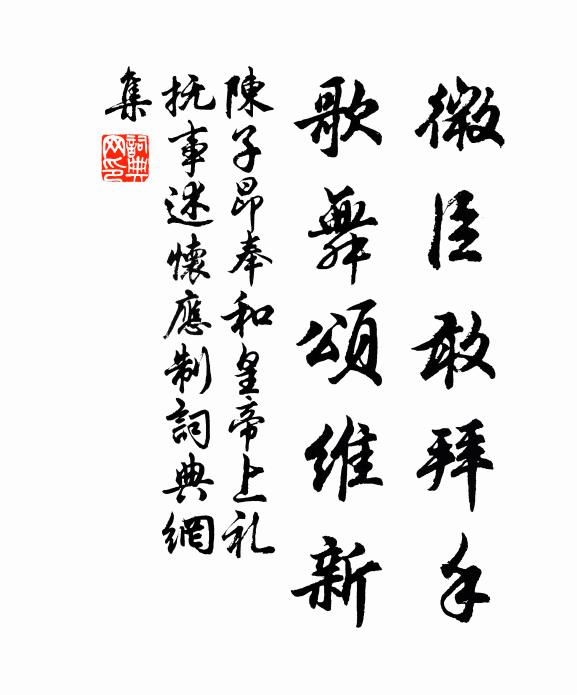 微臣敢拜手
歌舞頌維新
陳子昂奉和皇帝上礼
抚事述懷應制詞典網
集
詞典網印